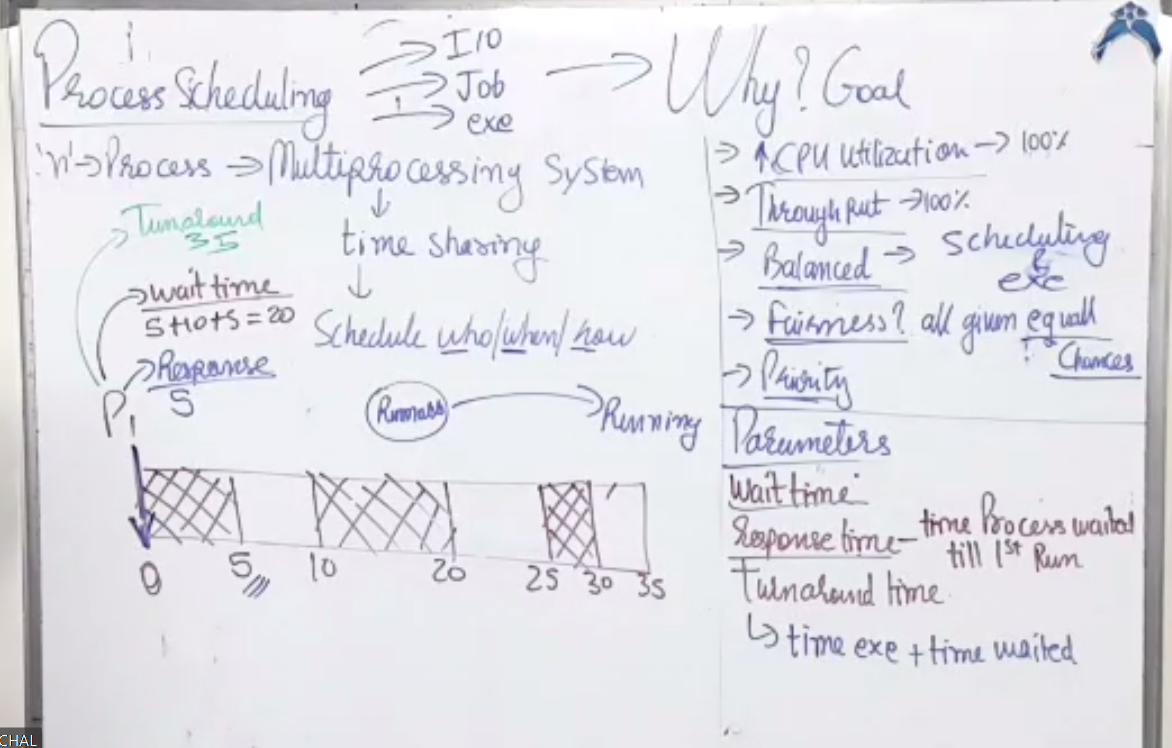 Process Scheduling
I/O
Job
exe
'n' → Process → Multiprocessing System
time sharing
Schedule who/when/how
Turnaround
35
wait time
5+10+5=20
Response
5
P1
Running
0 5 10 20 25 30 35
Why? Goal
→ ↑ CPU Utilization → 100%
→ Throughput → 100%
→ Balanced → Scheduling & exe
→ Fairness? all given equall
Chances
→ Priority
Parameters
Wait time
Response time – time Process waited
till 1st Run
Turnaround time
↳ time exe + time waited
CHAL